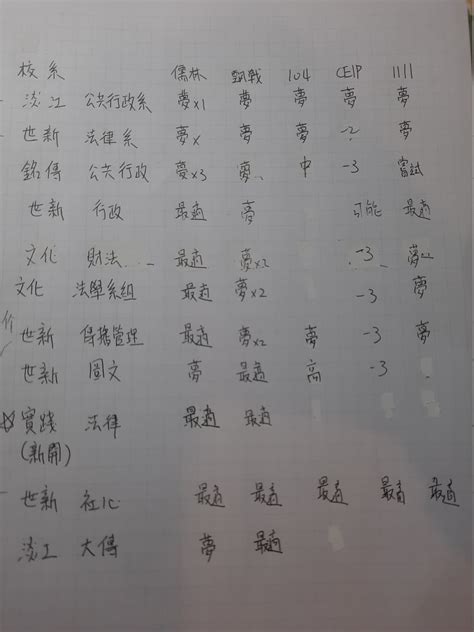 校系 儒林 甄戰 104 CEIP 1111
淡江 公共行政系 夢x1 夢 夢 夢 夢
世新 法律系 夢x 夢 夢 -2 夢
銘傳 公共行政 夢x3 夢 中 -3 嘗試
世新 行政 最適 夢 可能 最適
文化 財法 最適 夢x2 -3 夢
文化 法學系組 最適 夢x2 -3 夢
世新 傳播管理 最適 夢x2 夢 -3 夢
世新 圖文 夢 最適 高 -3
☆實踐 法律 最適 最適
(新開)
世新 社心 最適 最適 最適 最適 最適
淡江 大傳 夢 最適